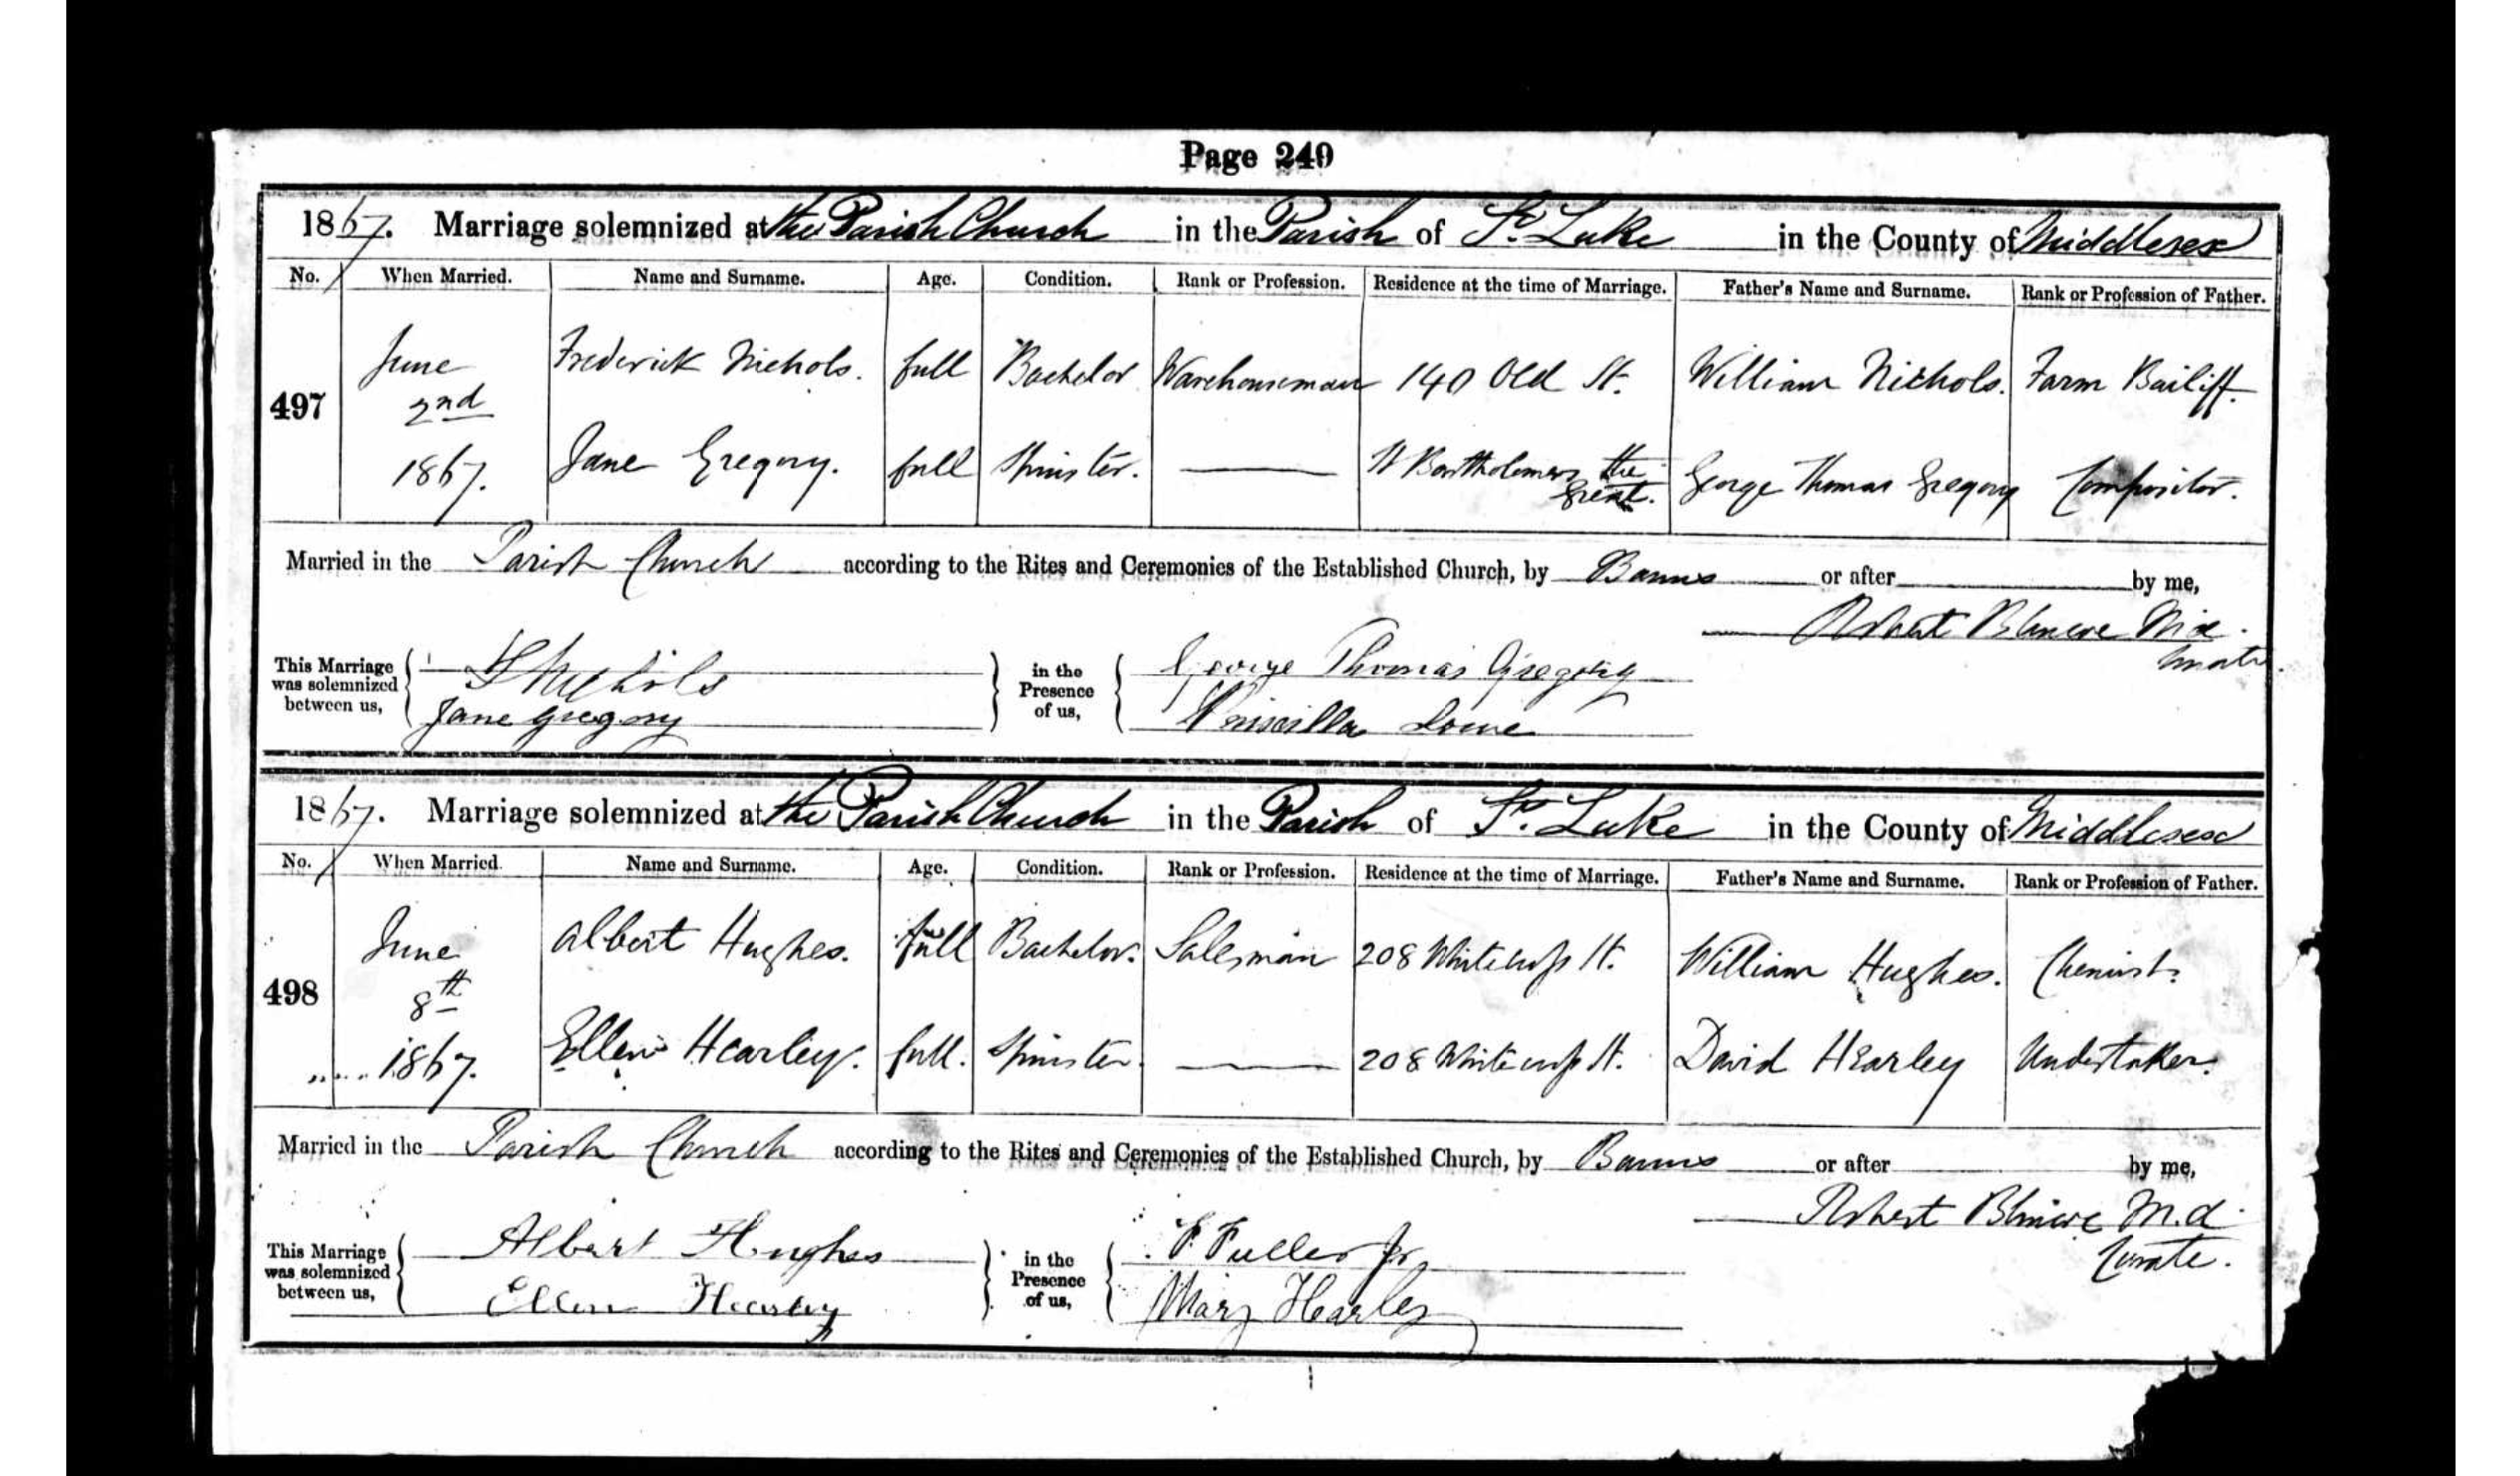 Page 240
1867. Marriage solemnized at the Parish Church in the Parish of St. Luke in the County of Middlesex
No. When Married. Name and Surname. Age. Condition. Rank or Profession. Residence at the time of Marriage. Father's Name and Surname. Rank or Profession of Father.
497 June 2nd 1867. Frederick Nichols. full Bachelor Warehouseman 140 Old St. William Nichols. Farm Bailiff.
Jane Gregory. full Spinster. St Bartholomew the Great. George Thomas Gregory Compositor.
Married in the Parish Church according to the Rites and Ceremonies of the Established Church, by Banns or after by me,
Robert
This Marriage was solemnized between us, F Nichols in the Presence of us, George Thomas Gregory
Jane Gregory Priscilla
1867. Marriage solemnized at the Parish Church in the Parish of St. Luke in the County of Middlesex
No. When Married. Name and Surname. Age. Condition. Rank or Profession. Residence at the time of Marriage. Father's Name and Surname. Rank or Profession of Father.
498 June 8th 1867. Albert Hughes. full Bachelor. Salesman 208 Whitecross St. William Hughes. Chemist.
Ellen Hearley. full. Spinster. 208 Whitecross St. David Hearley Undertaker.
Married in the Parish Church according to the Rites and Ceremonies of the Established Church, by Banns or after by me,
Robert
Curate.
This Marriage was solemnized between us, Albert Hughes in the Presence of us, F. Fuller Jr.
Ellen Hearley Mary Hearley